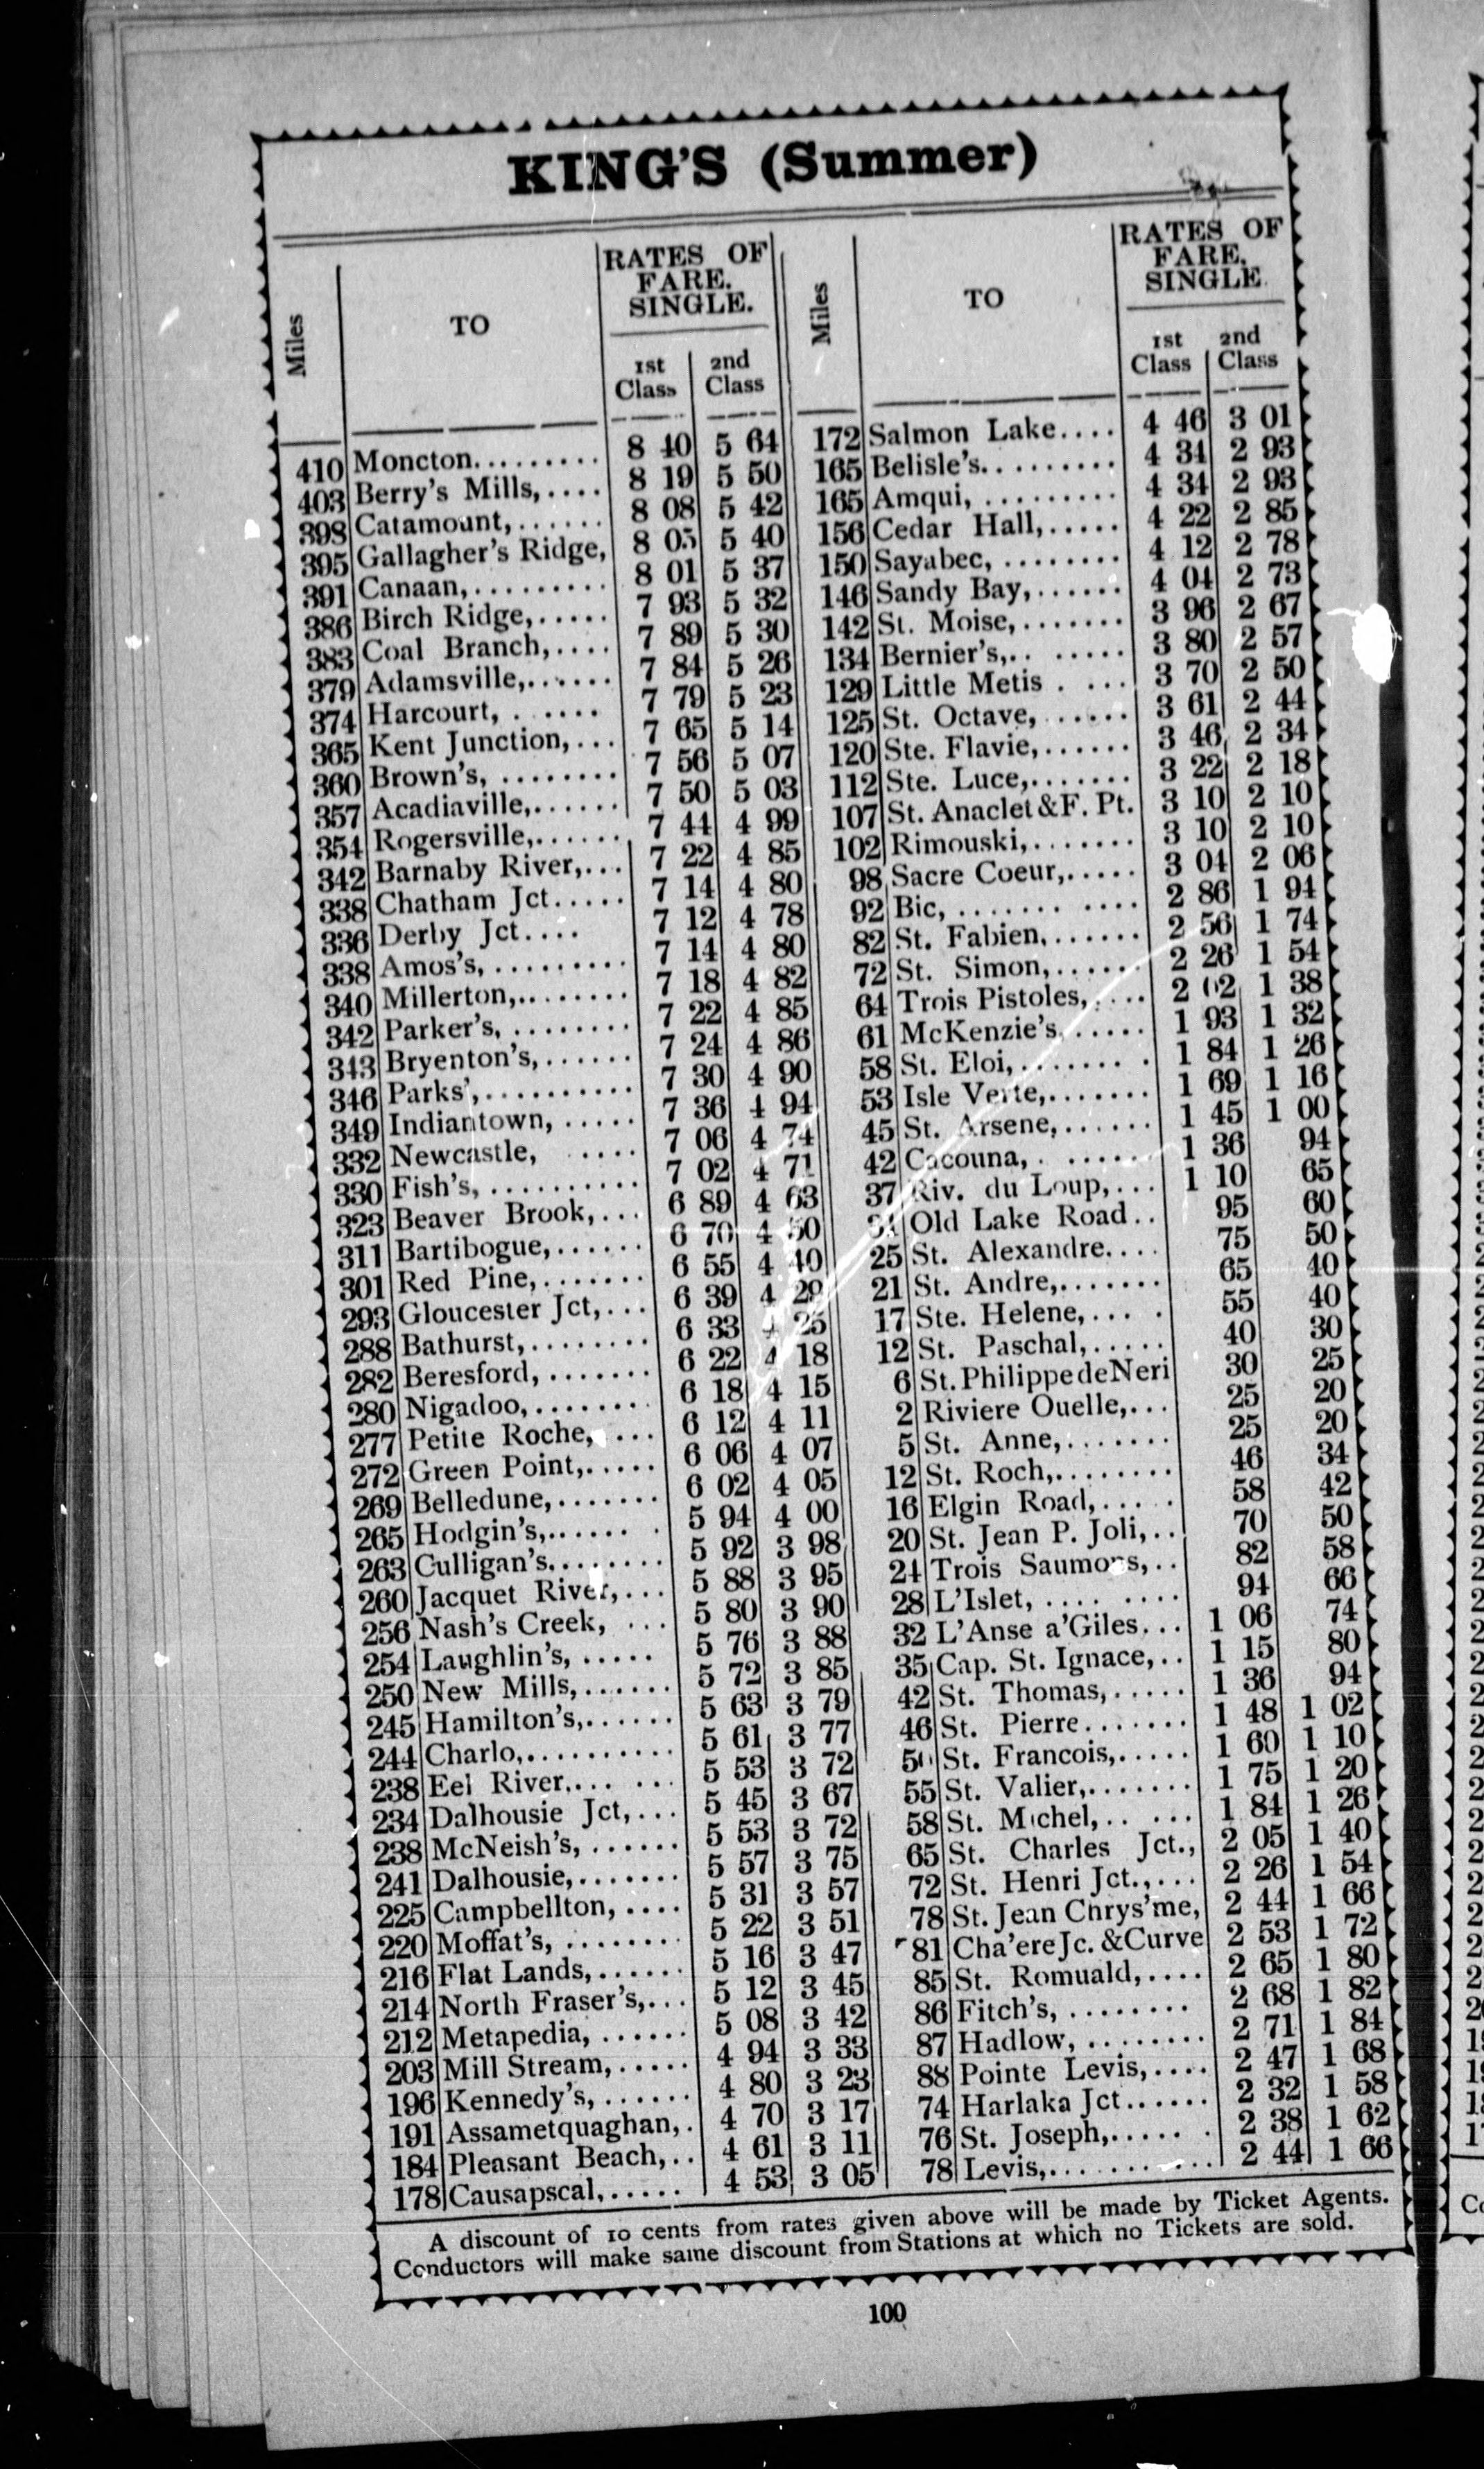 KING'S (Summer)
Miles TO RATES OF FARE. SINGLE. 1st Class 2nd Class
410 Moncton......... 8 40 5 64
403 Berry's Mills,.... 8 19 5 50
398 Catamount,...... 8 08 5 42
395 Gallagher's Ridge, 8 05 5 40
391 Canaan,......... 8 01 5 37
386 Birch Ridge,..... 7 93 5 32
383 Coal Branch,.... 7 89 5 30
379 Adamsville,...... 7 84 5 26
374 Harcourt, . ..... 7 79 5 23
365 Kent Junction,... 7 65 5 14
360 Brown's, ........ 7 56 5 07
357 Acadiaville,...... 7 50 5 03
354 Rogersville,...... 7 44 4 99
342 Barnaby River,... 7 22 4 85
338 Chatham Jct..... 7 14 4 80
336 Derby Jct.... 7 12 4 78
338 Amos's, ......... 7 14 4 80
340 Millerton,........ 7 18 4 82
342 Parker's, ........ 7 22 4 85
343 Bryenton's,...... 7 24 4 86
346 Parks',.......... 7 30 4 90
349 Indiantown, ..... 7 36 4 94
332 Newcastle, .... 7 06 4 74
330 Fish's, .......... 7 02 4 71
323 Beaver Brook,... 6 89 4 63
311 Bartibogue,...... 6 70 4 50
301 Red Pine,....... 6 55 4 40
293 Gloucester Jct,... 6 39 4 29
288 Bathurst,........ 6 33 4 25
282 Beresford, ....... 6 22 4 18
280 Nigadoo,........ 6 18 4 15
277 Petite Roche, ... 6 12 4 11
272 Green Point,..... 6 06 4 07
269 Belledune,....... 6 02 4 05
265 Hodgin's,...... . 5 94 4 00
263 Culligan's........ 5 92 3 98
260 Jacquet River,... 5 88 3 95
256 Nash's Creek, ... 5 80 3 90
254 Laughlin's, ..... 5 76 3 88
250 New Mills,...... 5 72 3 85
245 Hamilton's,...... 5 63 3 79
244 Charlo,.......... 5 61 3 77
238 Eel River,... ... 5 53 3 72
234 Dalhousie Jct,... 5 45 3 67
238 McNeish's, ...... 5 53 3 72
241 Dalhousie,....... 5 57 3 75
225 Campbellton, .... 5 31 3 57
220 Moffat's, ........ 5 22 3 51
216 Flat Lands,...... 5 16 3 47
214 North Fraser's,... 5 12 3 45
212 Metapedia, ...... 5 08 3 42
203 Mill Stream,..... 4 94 3 33
196 Kennedy's,...... 4 80 3 23
191 Assametquaghan,. 4 70 3 17
184 Pleasant Beach,.. 4 61 3 11
178 Causapscal,..... 4 53 3 05
Miles TO RATES OF FARE. SINGLE. 1st Class 2nd Class
172 Salmon Lake.... 4 46 3 01
165 Belisle's......... 4 34 2 93
165 Amqui, ......... 4 34 2 93
156 Cedar Hall,..... 4 22 2 85
150 Sayabec, ........ 4 12 2 78
146 Sandy Bay,...... 4 04 2 73
142 St. Moise,....... 3 96 2 67
134 Bernier's,.. ..... 3 80 2 57
129 Little Metis . ... 3 70 2 50
125 St. Octave, ...... 3 61 2 44
120 Ste. Flavie,...... 3 46 2 34
112 Ste. Luce,....... 3 22 2 18
107 St. Anaclet & F. Pt. 3 10 2 10
102 Rimouski,....... 3 10 2 10
98 Sacre Coeur,..... 3 04 2 06
92 Bic, ....... .... 2 86 1 94
82 St. Fabien,...... 2 56 1 74
72 St. Simon,...... 2 26 1 54
64 Trois Pistoles,.... 2 02 1 38
61 McKenzie's...... 1 93 1 32
58 St. Eloi,....... . 1 84 1 26
53 Isle Verte,....... 1 69 1 16
45 St. Arsene,...... 1 45 1 00
42 Cacouna, . ...... 1 36 94
37 Riv. du Loup,... 1 10 65
31 Old Lake Road.. 95 60
25 St. Alexandre.... 75 50
21 St. Andre,....... 65 40
17 Ste. Helene,... . 55 40
12 St. Paschal,..... 40 30
6 St. Philippe de Neri 30 25
2 Riviere Ouelle,... 25 20
5 St. Anne,....... 25 20
12 St. Roch,........ 46 34
16 Elgin Road,..... 58 42
20 St. Jean P. Joli,.. 70 50
24 Trois Saumons,.. 82 58
28 L'Islet, .... .... 94 66
32 L'Anse a'Giles... 1 06 74
35 Cap. St. Ignace,.. 1 15 80
42 St. Thomas,..... 1 36 94
46 St. Pierre....... 1 48 1 02
50 St. Francois,..... 1 60 1 10
55 St. Valier,....... 1 75 1 20
58 St. Michel,.. ... 1 84 1 26
65 St. Charles Jct., 2 05 1 40
72 St. Henri Jct.,... 2 26 1 54
78 St. Jean Chrys'me, 2 44 1 66
81 Cha'ere Jc. & Curve 2 53 1 72
85 St. Romuald,.... 2 65 1 80
86 Fitch's, ........ 2 68 1 82
87 Hadlow, ........ 2 71 1 84
88 Pointe Levis,.... 2 47 1 68
74 Harlaka Jct...... 2 32 1 58
76 St. Joseph,..... . 2 38 1 62
78 Levis,........... 2 44 1 66
A discount of 10 cents from rates given above will be made by Ticket Agents.
Conductors will make same discount from Stations at which no Tickets are sold.
100